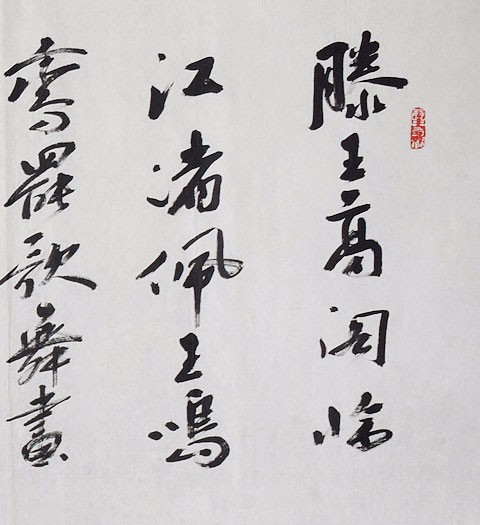 滕王高阁临
江渚佩玉鸣
鸾罷歌舞畫